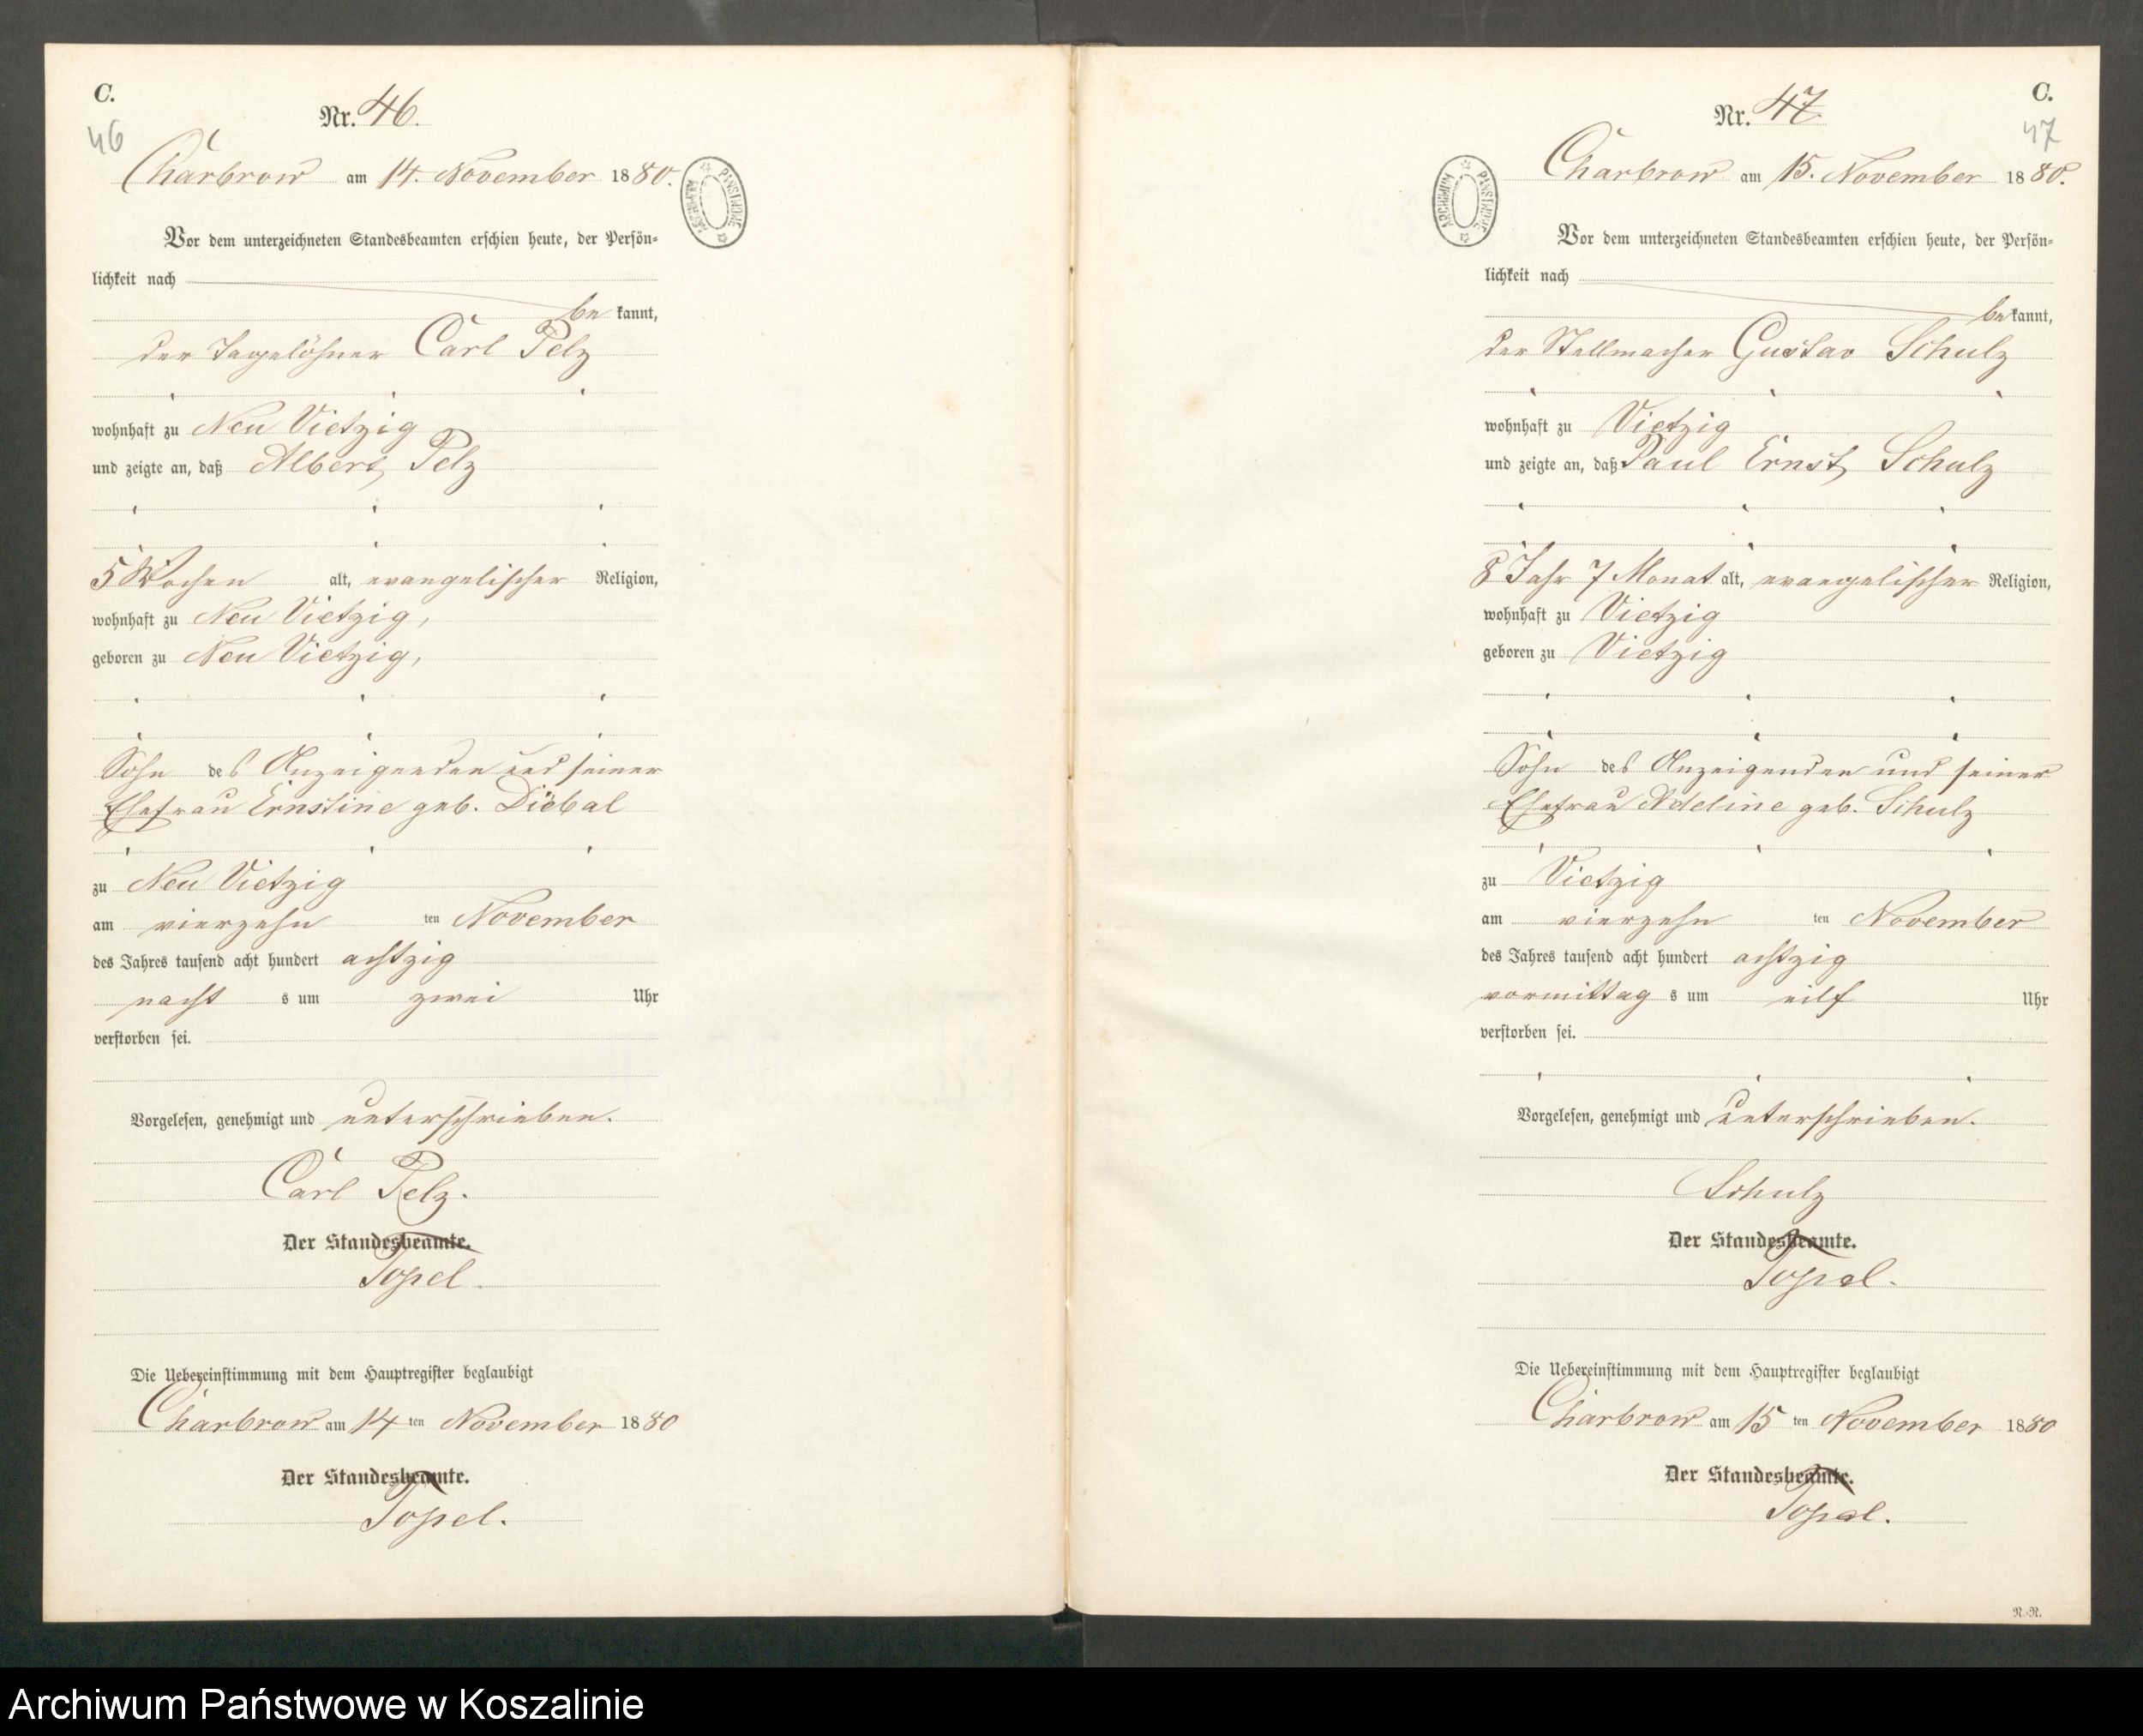 C.
46
Nr. 46.
Charbrow am 14. November 1880.
ARCHIWUM PAŃSTWOWE
Vor dem unterzeichneten Standesbeamten erschien heute, der Persön-
lichkeit nach
be kannt,
der Tagelöhner Carl Pelz
wohnhaft zu Neu Vietzig
und zeigte an, daß Albert Pelz
5 Wochen alt, evangelischer Religion,
wohnhaft zu Neu Vietzig,
geboren zu Neu Vietzig,
Sohn des Anzeigenden und seiner
Ehefrau Ernstine geb. Diebal
zu Neu Vietzig
am vierzehn ten November
des Jahres tausend acht hundert achtzig
nacht s um zwei Uhr
verstorben sei.
Vorgelesen, genehmigt und unterschrieben.
Carl Pelz.
Der Standesbeamte.
Topel.
Die Uebereinstimmung mit dem Hauptregister beglaubigt
Charbrow am 14 ten November 1880
Der Standesbeamte.
Topel.
C.
47
Nr. 47
Charbrow am 15. November 1880.
ARCHIWUM PAŃSTWOWE
Vor dem unterzeichneten Standesbeamten erschien heute, der Persön-
lichkeit nach
be kannt,
der Stellmacher Gustav Schulz
wohnhaft zu Vietzig
und zeigte an, daß Paul Ernst Schulz
8 Jahr 7 Monat alt, evangelischer Religion,
wohnhaft zu Vietzig
geboren zu Vietzig
Sohn des Anzeigenden und seiner
Ehefrau Adeline geb. Schulz
zu Vietzig
am vierzehn ten November
des Jahres tausend acht hundert achtzig
vormittag s um eilf Uhr
verstorben sei.
Vorgelesen, genehmigt und unterschrieben.
Schulz
Der Standesbeamte.
Topel.
Die Uebereinstimmung mit dem Hauptregister beglaubigt
Charbrow am 15 ten November 1880
Der Standesbeamte.
Topel.
N.-N.
Archiwum Państwowe w Koszalinie